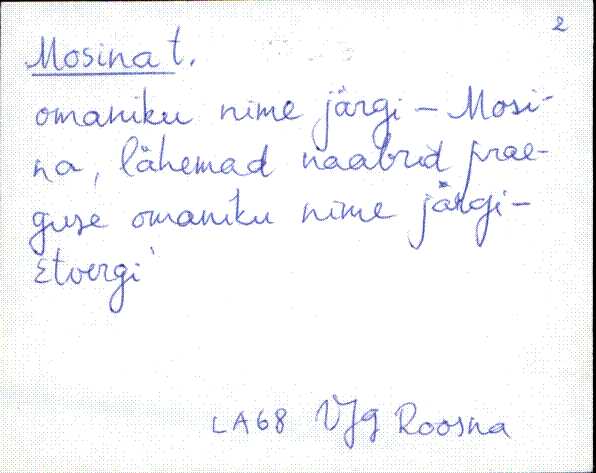 2
Mosina t.
omaniku nime järgi – Mosi-
na, lähemad naabrid prae-
guse omaniku nime järgi –
Etvergi
LA68 VJg Roosna